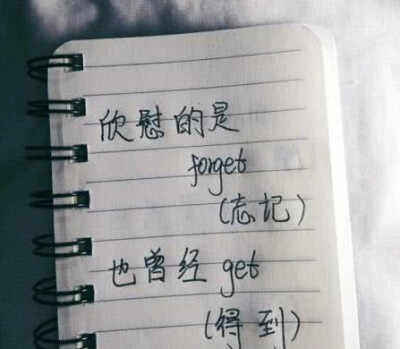 欣慰的是
forget
(忘记)
也曾经 get
(得到)